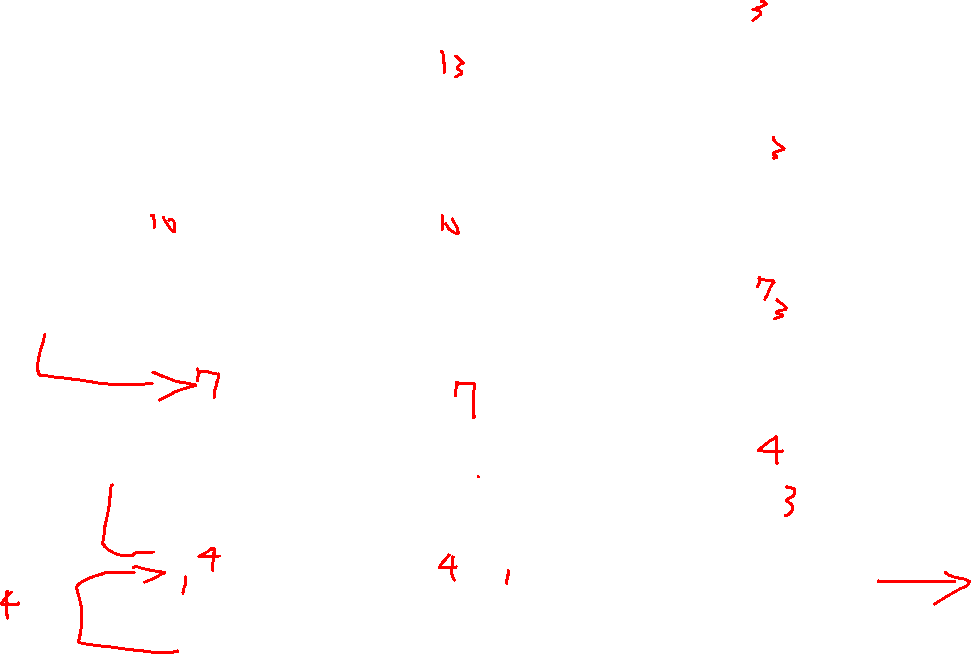 3
13
3
10 10
7
3
7 7
4
3
4 4
1 1
4